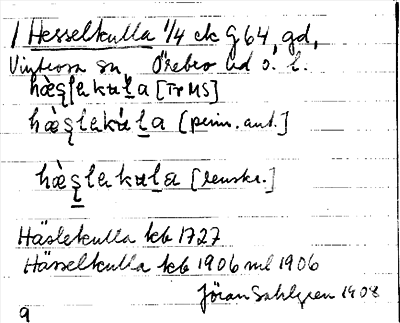 1 Hesselkulla 1/4 ek G 64, gd,
Vintrosa sn Örebro hd Ö. l.
hæ̀s̨lakúla [TrMS]
hæ̀s̨lakúla [pers. ant.]
hæ̀s̨lakula [lensk.]
Häslekulla kb 1727
Hässelkulla kb 1906 ml 1906
Jöran Sahlgren 1908
9